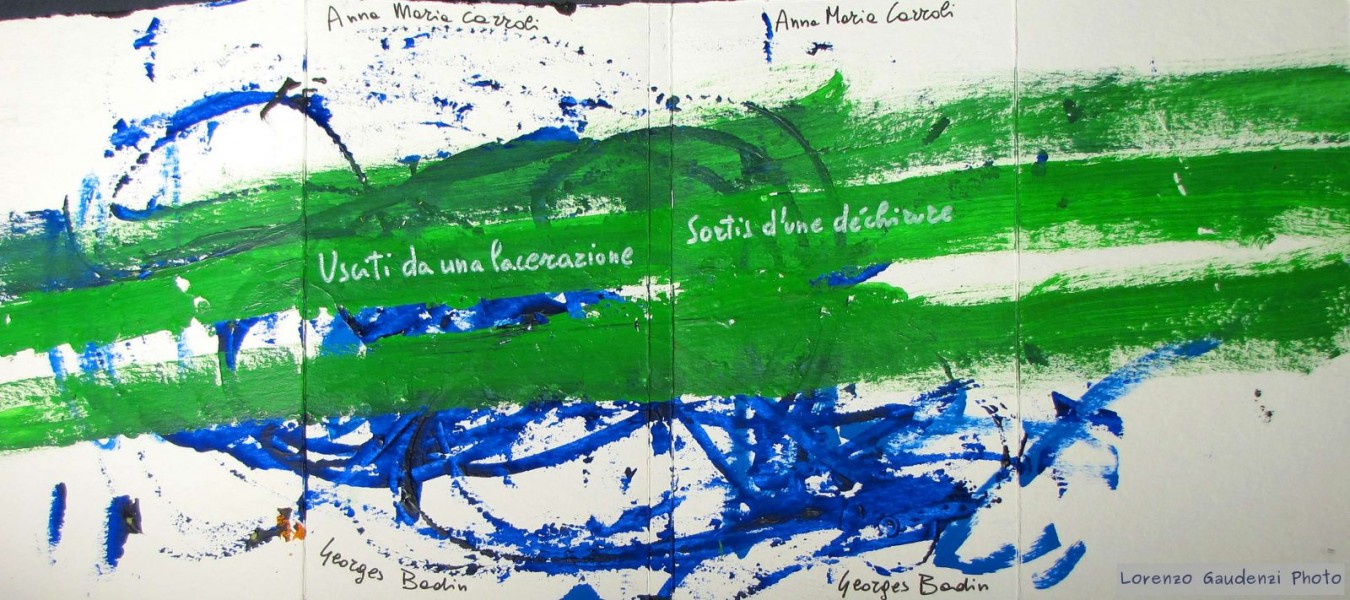 Anna Maria Carroli
Anna Maria Carroli
Usciti da una lacerazione
Sortis d'une déchirure
Georges Badin
Georges Badin
Lorenzo Gaudenzi Photo